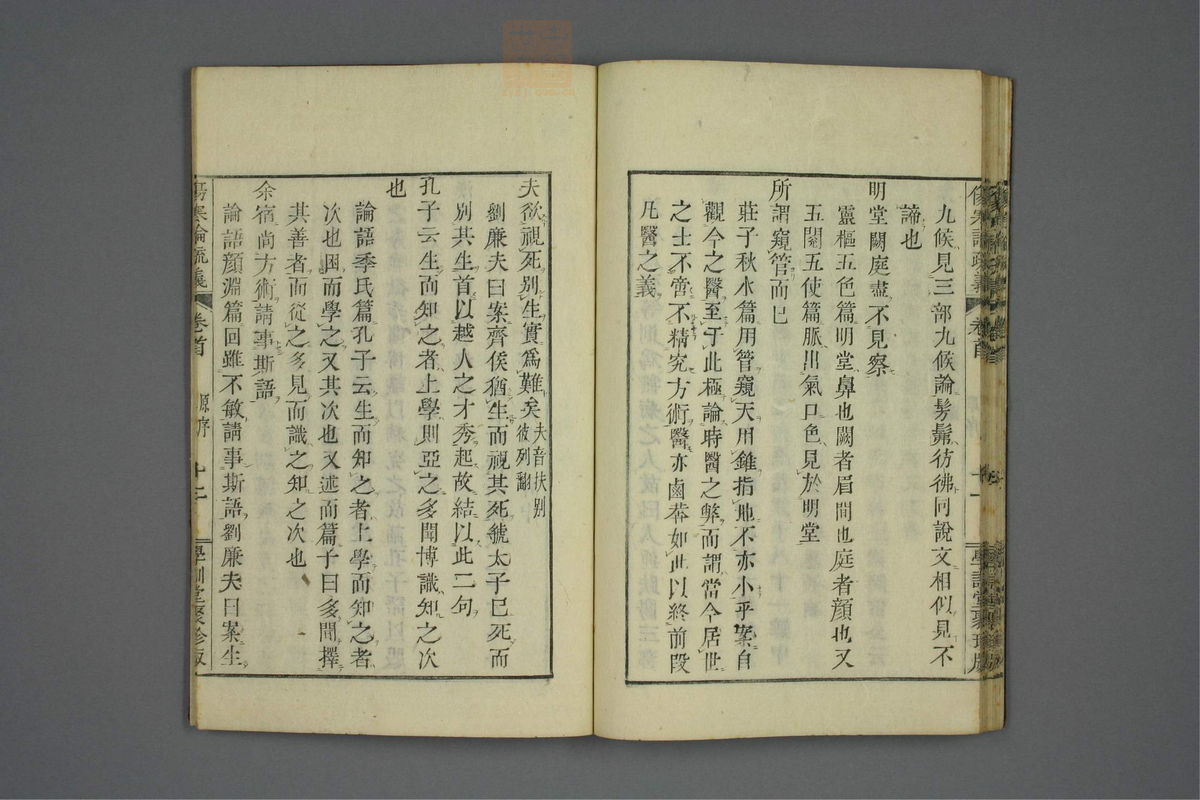 傷寒論疏義
卷首
十一
學訓堂聚珍版
九候見三部九候論髣髴彷彿同說文相似見不
諦也
明堂闕庭盡不見察
靈樞五色篇明堂鼻也闕者眉間也庭者顏也又
五閱五使篇脈出氣口色見於明堂
所謂窺管而已
莊子秋水篇用管窺天用錐指地不亦小乎案自
觀今之醫至于此極論時醫之弊而謂當今居世
之士不啻不精究方術醫亦鹵莽如此以終前段
凡醫之義
夫欲視死別生實爲難矣夫音扶別
彼列翻
劉廉夫曰案齊侯猶生而視其死虢太子已死而
別其生首以越人之才秀起故結以此二句
孔子云生而知之者上學則亞之多聞博識知之次
也
論語季氏篇孔子云生而知之者上學而知之者
次也困而學之又其次也又述而篇子曰多聞擇
其善者而從之多見而識之知之次也
余宿尚方術請事斯語
論語顏淵篇回雖不敏請事斯語劉廉夫曰案生
傷寒論疏義
卷首
原序
十二
學訓堂聚珍版